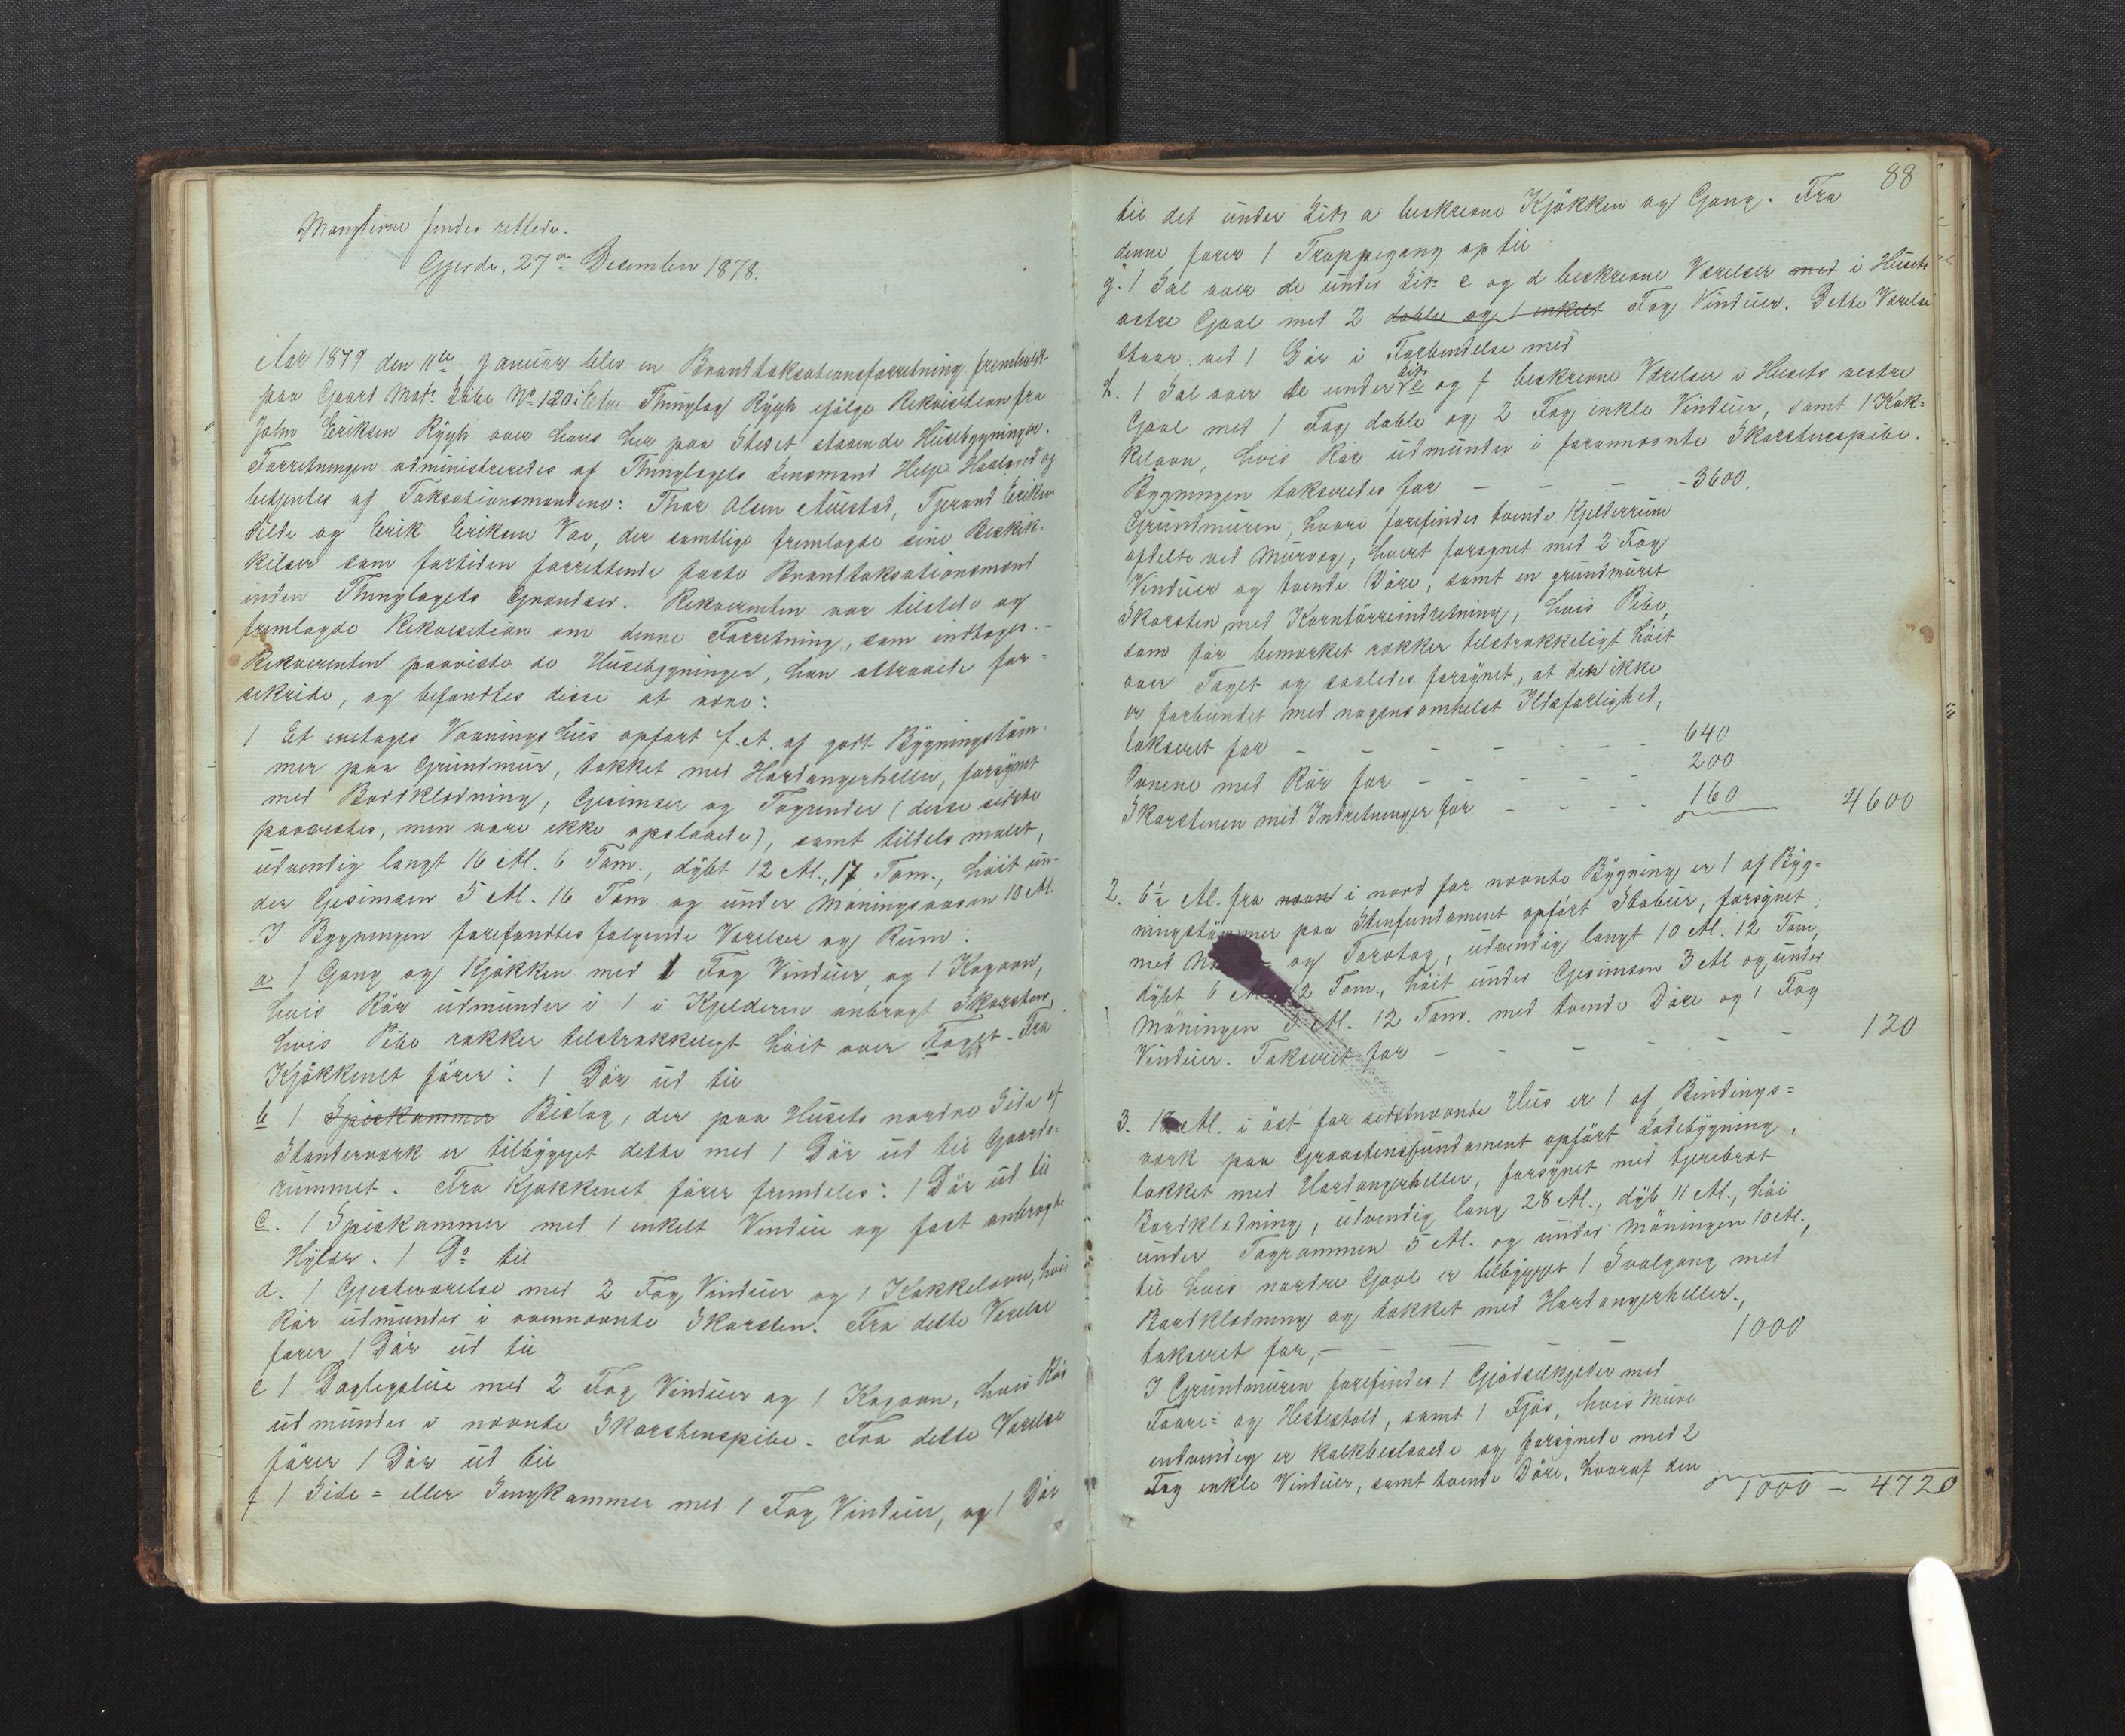 Manglerne findes rettede.
Gjerde, 27de Desember 1878.
Aar 1879 den 11te Januar blev en Brandtaksationsforretning fremholdt
paa Gaard Matr. Løbe No 120 i Etne Thinglag Rygh ifölge Rekvisition fra
John Eriksen Rygh over hans her paa Stedet staaende Husebygninger.
Forretningen administreredes af Thinglagets Lensmand Helje Haaland og
betjentes af Taksationsmændene: Thor Olsen Austad, Tjerand Eriksen
Silde og Erik Eriksen Vae, der samtlige fremlagde sine Beskik-
kelser som fortiden forrettende faste Brandtaksationsmænd
inden Thinglagets Grændser. Rekvirenten var tilstede og
fremlagde Rekvisition om denne Forretning, som indtages.-
Rekvirenten paaviste de Husebygninger, han attraaede for-
sikride, og befandtes disse at være:
1 Et enetages Vaaningshus opfört f. A. af godt Bygningstöm-
mer paa Grundmur, tækket med Hardangerheller, forsynet
med Bordklædning, Gesimser og Tagrender (disse sidste
paavistes, men vare ikke opslaaede), samt tildels malet,
udvendig langt 16 Al. 6 Tom., dybt 12 Al., 17 Tom., höit un-
der Gesimsen 5 Al. 16 Tom og under Möningsaasen 10 Al.
I Bygningen forefandtes fölgende Værelser og Rum:
a 1 Gang og Kjökken med 1 Fag Vinduer, og 1 Kogovn,
hvis Rör udmunder i 1 i Kjelderen anbragt Skorsten,
hvis Pibe rækker tilstrækkeligt höit over Taget. Fra
Kjökkenet förer: 1 Dör ud til
b 1 Spiskammer Bislag, der paa Husets nordre Side af
Stenderværk er tilbygget dette med 1 Dör ud til Gaards-
rummet. Fra Kjökkenet förer fremdeles: 1 Dör ud til
c. 1 Spiskammer med 1 enkelt Vindue og fast anbragte
Hylder. 1 Do til
d. 1 Gjesteværelse med 2 Fag Vinduer og 1 Kakkelovn, hvis
Rör udmunder i ovennævnte Skorsten. Fra dette Værelse
förer 1 Dör ud til
e 1 Daglegstue med 2 Fag Vinduer og 1 Kogovn, hvis Rör
udmunder i nævnte Skorstenspibe. Fra dette Værelse
förer 1 Dör ud til
f 1 Side= eller Sengkammer med 1 Fag Vinduer, og 1 Dör
88
til det under Litr a beskrevne Kjökken og Gang. Fra
denne förer 1 Trappegang op til
g. 1 Sal over de under Litr c og d beskrevne Værelser med i Husets
östre Gavl med 2 doble og 1 enkelt Fag Vinduer. Dette Værelse
staar ved 1 Dör i Forbindelse med
h. 1 Sal over de under Litr e og f beskrevne Værelser i Husets vestre
Gavl med 1 Fag doble og 2 Fag enkle Vinduer, samt 1 Kak=
kelovn, hvis Rör udmunder i forannævnte Skorstenspibe.
Bygningen takseredes for - - - - 3600.
Grundmuren, hvori forefindes tvende Kjelderrum
opdelte ved Murvæg, hvert forsynet med 2 Fag
Vinduer og tvende Döre, samt en grundmuret
Skorsten med Korntörreindretning, hvis Pibe,
som för bemærket rækker tilstrækkeligt höit
over Taget og saaledes forsynet, at den ikke
er forbundet med nogensomhelst Ildsfarlighed,
takseret for - - - - - - - 640
Ovnene med Rör for - - - - - 200
Skorstenen med Indretninger for - - - - 160 4600
2. 6½ Al. fra i nord for nævnte Bygning er 1 af Byg=
ningstömmer paa Stenfundament opfört Stabur, forsynet
med og Torvtag, udvendig langt 10 Al. 12 Tom,
dybt 6 Al. 12 Tom., höit under Gesimsen 3 Al og under
Möningen 5 Al. 12 Tom. med tvende Döre og 1 Fag
Vinduer. Takseret for - - - - - - 120
3. Al. i öst for sidstnævnte Hus er 1 af Bindings=
værk paa Graastensfundament opfört Ladebygning,
tækket med Hardangerheller, forsynet med tjærebræt
Bordklædning, udvendig lang 28 Al., dyb 11 Al., höi
under Tagrammen 5 Al. og under Möningen 10 Al.,
til hvis nordre Gavl er tilbygget 1 Svalgang med
Bordklædning og tækket med Hardangerheller,
takseret for, - - - 1000
I Grundmuren forefindes 1 Gjödselkjelder med
Faare= og Hestestald, samt 1 Fjös, hvis Mure
indvendig er kalkbeslaaede og forsynede med 2
Fag enkle Vinduer, samt tvende Döre, hvoraf den
1000 - 4720